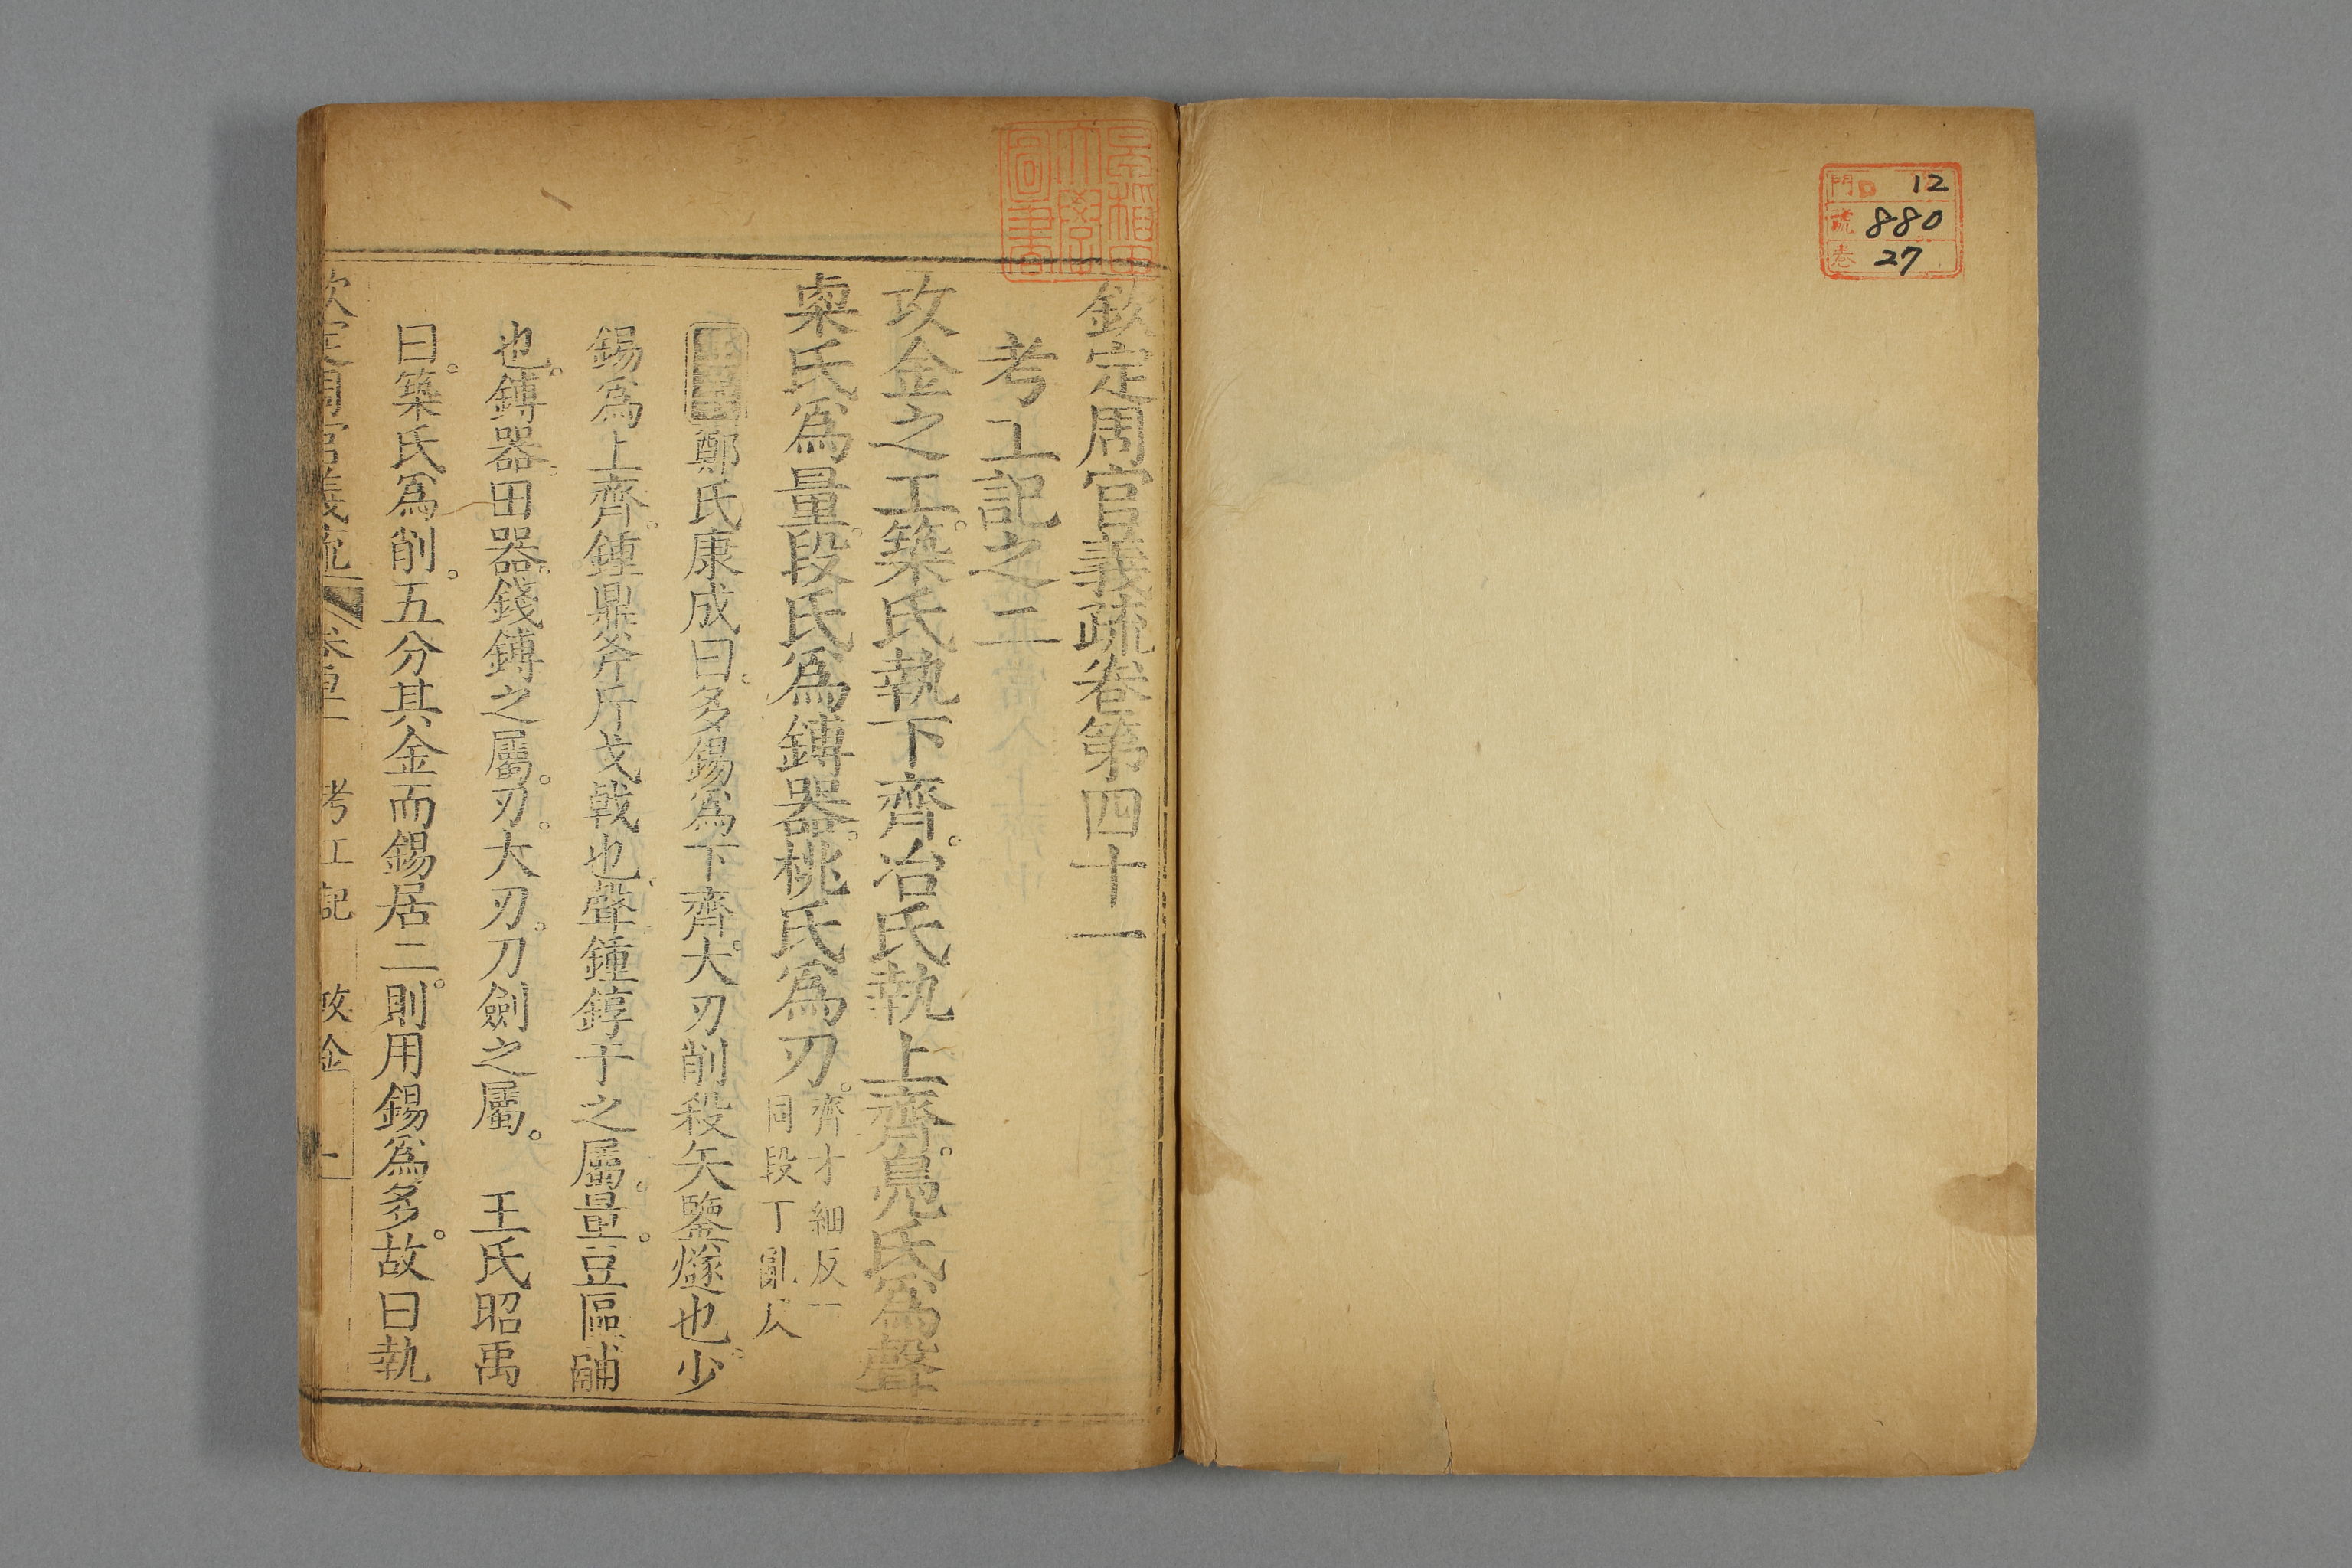 門 12
號 880
卷 27
早稻田大學圖書
欽定周官義疏卷第四十一
考工記之二
攻金之工。築氏執下齊。冶氏執上齊。鳧氏為聲
㮚氏為量。段氏為鎛器。桃氏為刃。
齊才細反
同段丁亂人
鄭氏康成曰。多錫為下齊。大刃削殺矢鑒燧也。少
錫為上齊。鍾鼎斧斤戈戟也。聲鍾錞于之屬。量。豆區鬴
也。鎛器。田器。錢鎛之屬。刃。大刃。刀劍之屬。 王氏昭禹
曰。築氏為削。五分其金而錫居二。則用錫為多。故曰執
欽定周官義疏 卷四十一 考工記 攻金 一